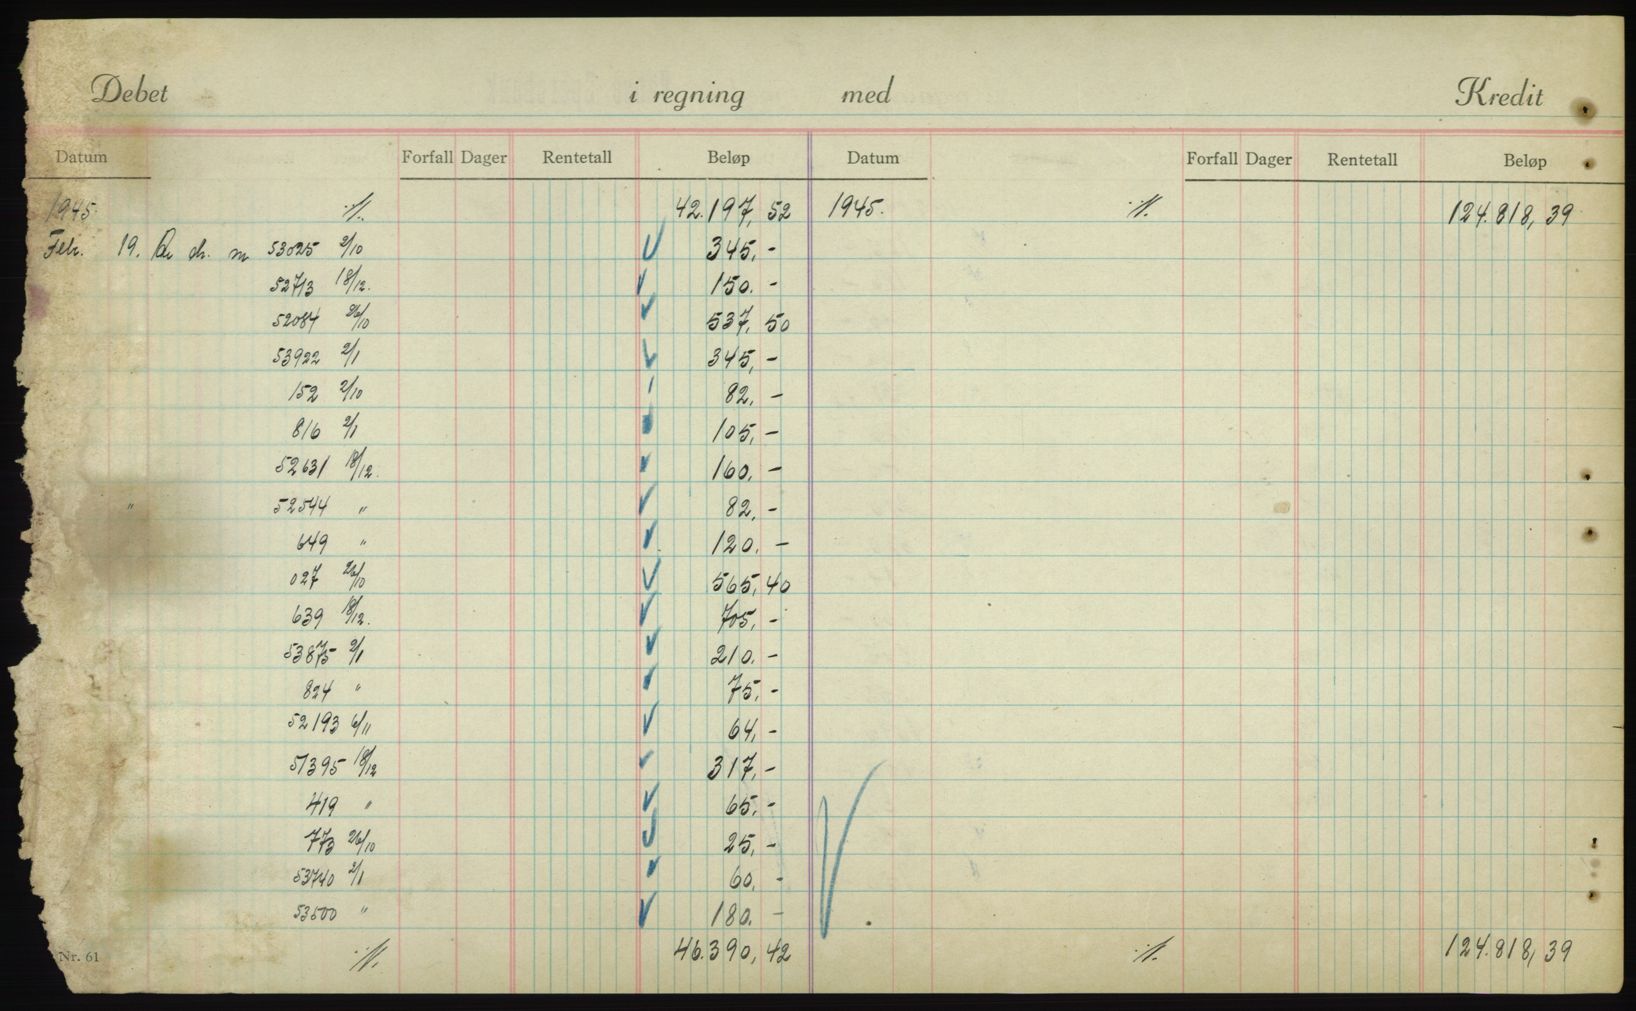 Debet i regning med Kredit
Datum Forfall Dager Rentetall Beløp Datum Forfall Dager Rentetall Beløp
1945. ·/. 42.197,52 1945. ·/. 124.818,39
Febr. 19. m 53025 2/10 345,-
52713 18/12. 150.-
52084 26/10 537,50
53922 2/1 345,-
152 2/10 82,-
816 2/1 105,-
52631 18/12. 160,-
" 52544 " 82,-
649 " 120.-
027 26/10 565,40
639 18/12. 705,-
53875 2/1 210.-
824 " 75,-
52193 6/11 64,-
51395 18/12 317,-
419 " 65,-
773 26/10 25,-
53740 2/1 60,-
53500 " 180.-
·/. 46.390,42 ·/. 124.818,39
Nr. 61